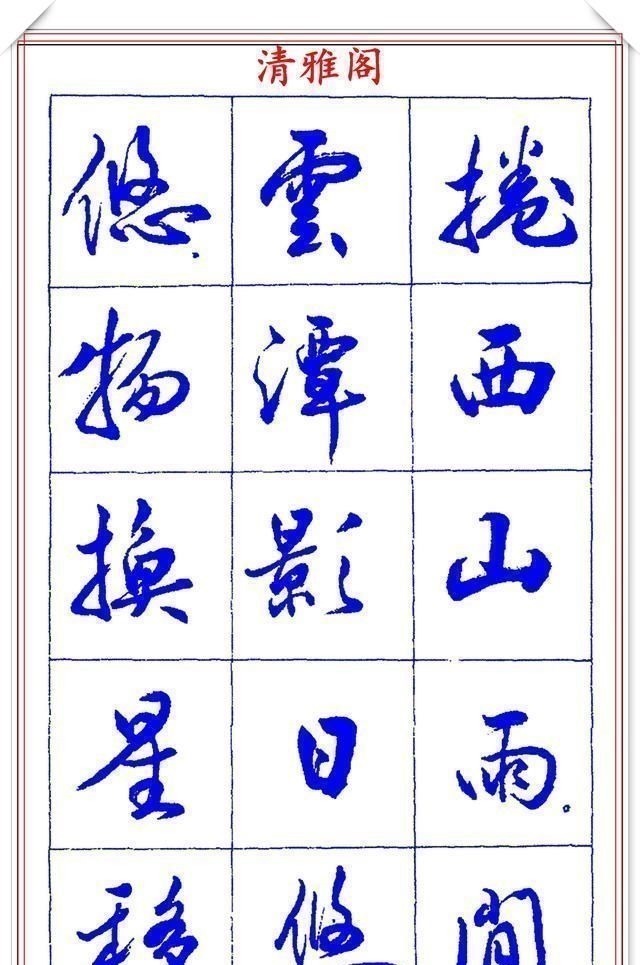 清雅阁
捲西山雨。閒
雲潭影日悠
悠.物換星移